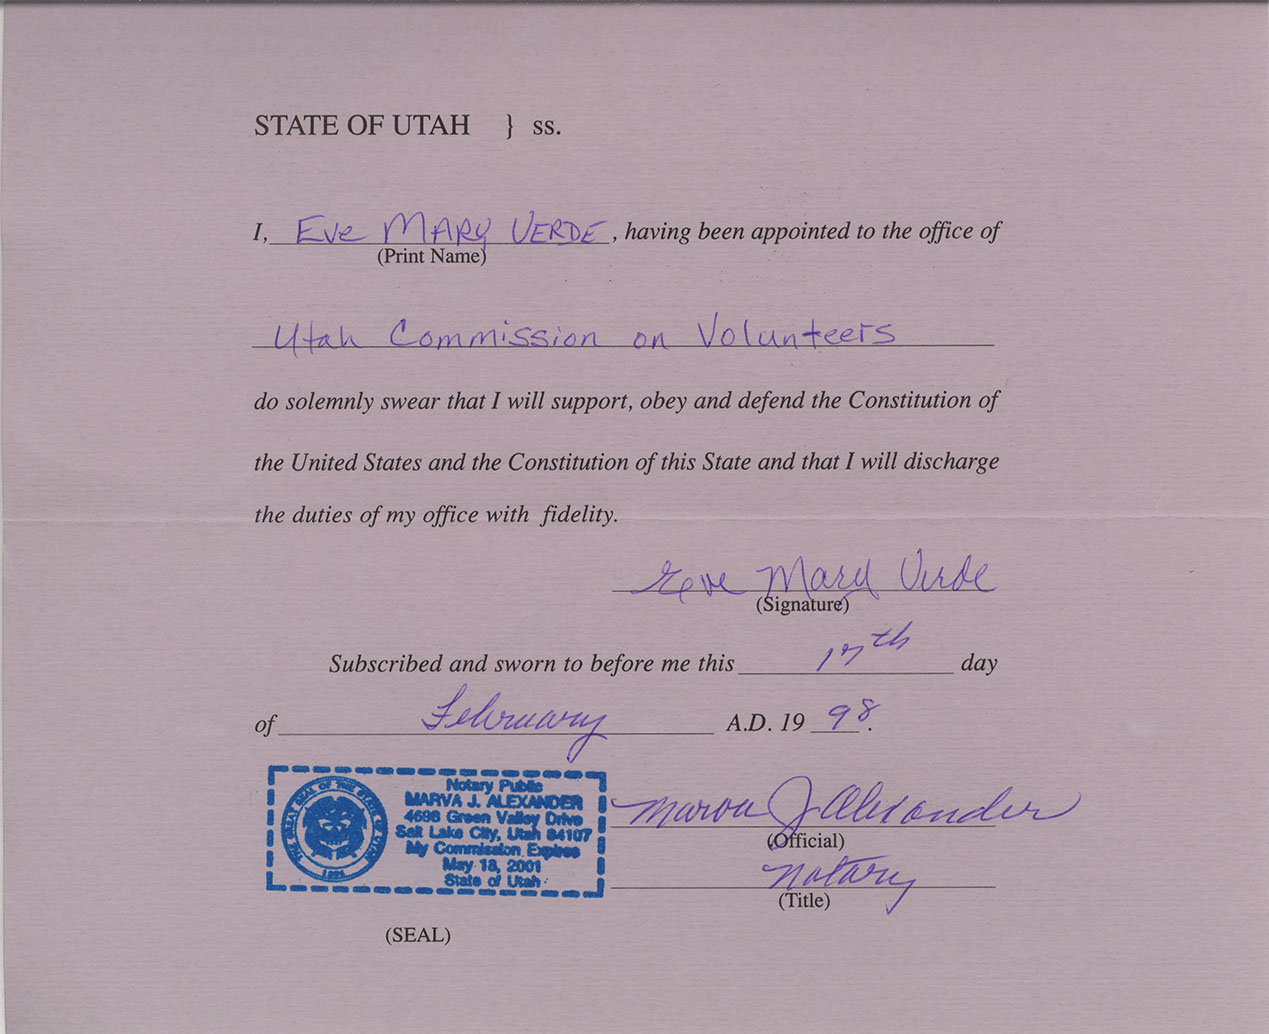 STATE OF UTAH } ss.
I, Eve MARY VERDE, having been appointed to the office of
(Print Name)
Utah Commission on Volunteers
do solemnly swear that I will support, obey and defend the Constitution of
the United States and the Constitution of this State and that I will discharge
the duties of my office with fidelity.
Eve Mary Verde
(Signature)
Subscribed and sworn to before me this 17th day
of February A.D. 19 98.
Notary Public
MARVA J. ALEXANDER
4698 Green Valley Drive
Salt Lake City, Utah 84107
My Commission Expires
May 18, 2001
State of Utah
THE GREAT SEAL OF THE STATE OF UTAH
1896
Marva J Alexander
(Official)
Notary
(Title)
(SEAL)